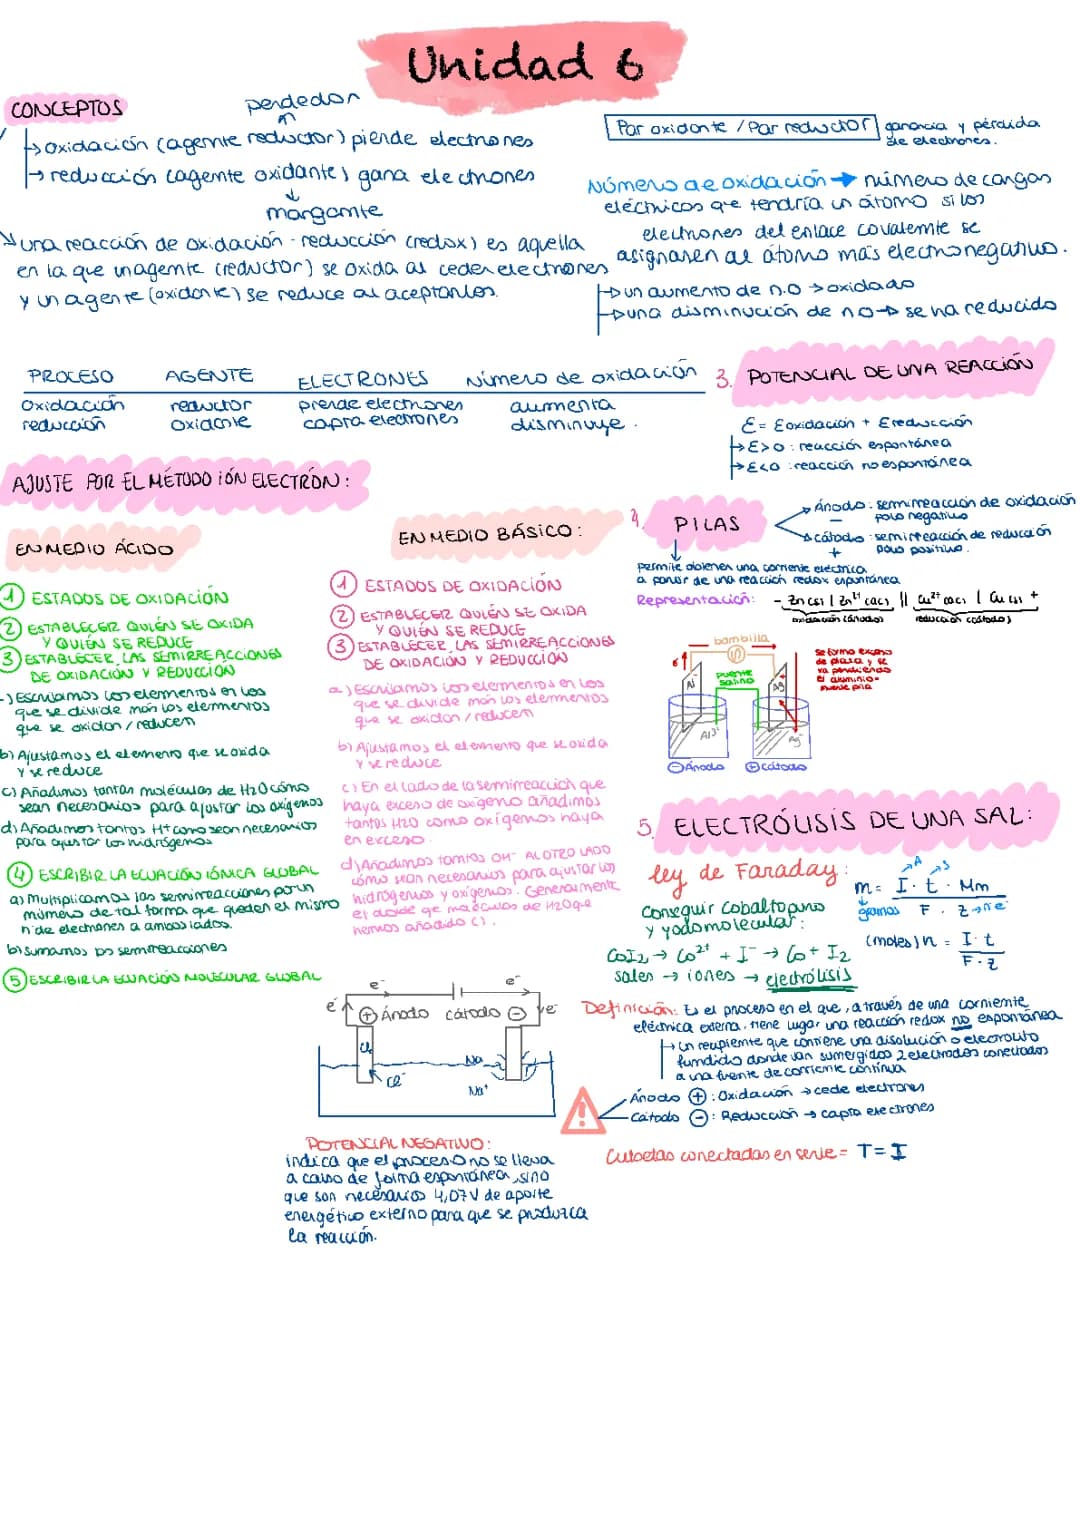 Unidad 6
CONCEPTOS
perdedor
oxidación (agente reductor) pierde electrones
reducción (agente oxidante) gana electrones
margante
una reacción de oxidación-reducción (redox) es aquella
en la que un agente (reductor) se oxida al ceder electrones
y un agente (oxidante) se reduce al aceptarlos.
Par oxidante / Par reductor
ganancia y pérdida
de electrones.
Número de oxidación → número de cargas
eléctricas que tendría un átomo si los
electrones del enlace covalente se
asignasen al átomo más electronegativo.
un aumento de n.o → oxidado
una disminución de no → se ha reducido
PROCESO AGENTE ELECTRONES Número de oxidación
Oxidación reductor pierde electrones aumenta
reducción oxidante capta electrones disminuye.
3. POTENCIAL DE UNA REACCIÓN
E = Eoxidación + Ereducción
E>0 : reacción espontánea
E<0 : reacción no espontánea
AJUSTE POR EL MÉTODO IÓN ELECTRÓN:
EN MEDIO ÁCIDO
1 ESTADOS DE OXIDACIÓN
2 ESTABLECER QUIÉN SE OXIDA
Y QUIÉN SE REDUCE
3 ESTABLECER LAS SEMIRREACCIONES
DE OXIDACIÓN Y REDUCCIÓN
-) Escribimos los elementos en los
que se divide más los elementos
que se oxidan / reducen
b) Ajustamos el elemento que se oxida
y se reduce
c) Añadimos tantas moléculas de H2O cómo
sean necesarios para ajustar los oxígenos
d) Añadimos tantos H+ como sean necesarios
para ajustar los hidrógenos
4 ESCRIBIR LA ECUACIÓN IÓNICA GLOBAL
a) Multiplicamos las semirreacciones por un
número de tal forma que queden el mismo
nº de electrones a ambos lados.
b) sumamos las semirreacciones
5 ESCRIBIR LA ECUACIÓN MOLECULAR GLOBAL
EN MEDIO BÁSICO:
1 ESTADOS DE OXIDACIÓN
2 ESTABLECER QUIÉN SE OXIDA
Y QUIÉN SE REDUCE
3 ESTABLECER LAS SEMIRREACCIONES
DE OXIDACIÓN Y REDUCCIÓN
a) Escribimos los elementos en los
que se divide más los elementos
que se oxidan / reducen
b) Ajustamos el elemento que se oxida
y se reduce
c) En el lado de la semirreacción que
haya exceso de oxígeno añadimos
tantos H2O como oxígenos haya
en exceso.
d) Añadimos tantos OH- AL OTRO LADO
cómo sean necesarios para ajustar los
hidrógenos y oxígenos. Generalmente
el doble que moléculas de H2O que
hemos añadido c).
4. PILAS
Ánodo : semirreacción de oxidación
− polo negativo
cátodo : semirreacción de reducción
+ polo positivo.
permite obtener una corriente eléctrica
a partir de una reacción redox espontánea
Representación: - Zn(s) | Zn2+ (ac) || Cu2+ (ac) | Cu(s) +
oxidación (ánodo) reducción (cátodo)
bombilla
e-
puente
salino
Al Ag
Al3+ Ag+
⊖ Ánodo ⊕ cátodo
se forma exceso
de plata y se
va perdiendo
el aluminio =
muere pila
5. ELECTRÓLISIS DE UNA SAL:
ley de Faraday:
m = I . t . Mm
F . z → nºe-
A s
gramos
(moles) n = I . t
F . z
Conseguir cobalto puro
y yodo molecular:
CoI2 → Co2+ + I- → Co + I2
sales → iones → electrólisis
Definición: Es el proceso en el que, a través de una corriente
eléctrica externa, tiene lugar una reacción redox no espontánea
un recipiente que contiene una disolución o electrolito
fundido donde van sumergidos 2 electrodos conectados
a una fuente de corriente continua
Ánodo ⊕ : Oxidación → cede electrones
Cátodo ⊖ : Reducción → capta electrones
Cubetas conectadas en serie = T = I
e- e-
e- ⊕ Ánodo cátodo ⊖ e-
Cl2 Na
Cl- Na+
POTENCIAL NEGATIVO:
indica que el proceso no se lleva
a cabo de forma espontánea, sino
que son necesarios 4,07V de aporte
energético externo para que se produzca
la reacción.